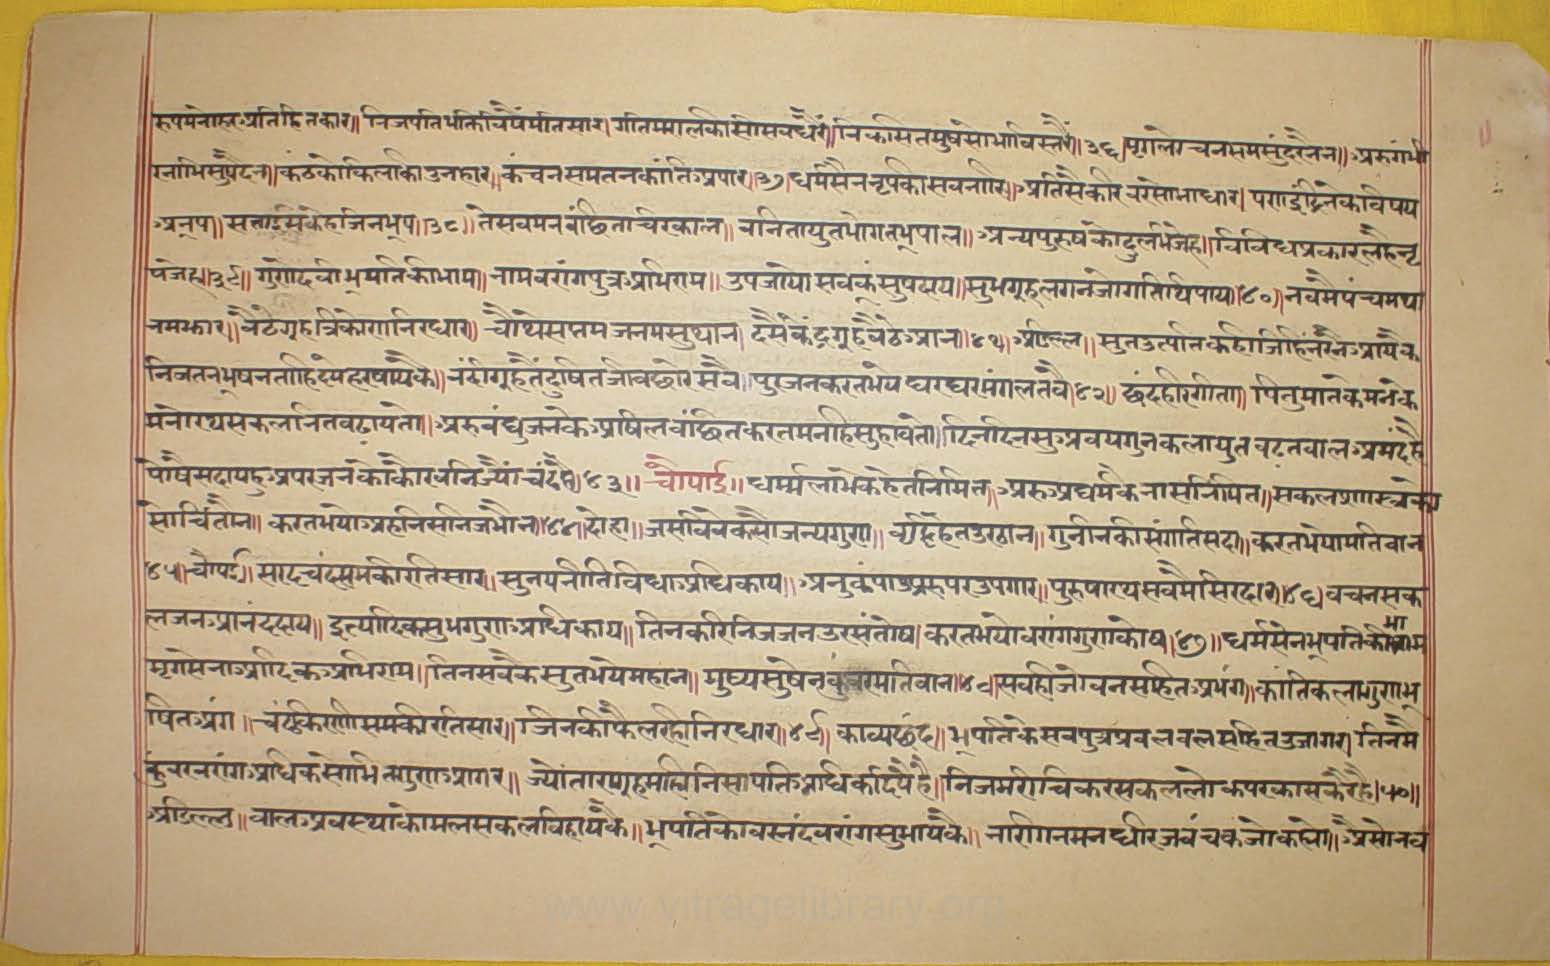 रूपमनोहर अतिहितकार॥ निजपतिभक्तिविषैंमतिसार। गतिमरालकीसीसबधरैं॥ विकसितमुषसोभाविस्तरैं॥३६॥ मृगलोचनसमसुंदरनैन॥ अरुगंभी
रनाभिसुषदैन॥ कंठकोकिलाकीउनहार॥ कंचनसमतनकांतिअपार॥३७॥ धर्मसैननृपकीसबनारि॥ अतिसैकरिवरसोभाधार। पणइंद्रिनकेविषय
अनूप॥ सत्ताईसकहेजिनभूप॥३८॥ तेसबमनवंछितचिरकाल॥ वनितायुतभोगतभूपाल॥ अन्यपुरुषकोंदुर्लभजेह॥ विविधप्रकारलहैनृ
पजेह॥३९॥ गुणदेवीभूपतिकीभाम॥ नामवरांगपुत्रअभिराम॥ उपजायोसबकूंसुषदाय॥ सुभगृहलगनजोगतिथिपाय॥४०॥ नवमैपंचमथा
नमझार॥ बैठेगृहत्रिकोणनिरधार॥ चौथेसप्तमजनमसुथान। दसमैंकेंद्रगृहबैठेआन॥४१॥ अडिल्ल॥ सुतउत्पतिकही
निजतनभूषनताहि ॥ पुरजनकरतभयेघरघरमंगलतबै॥४२॥ छंदहरिगीता॥ पितुमातकेमनके
मनोरथसकलनितबढायतो॥ अरुबंधुजनकेअषिलवांछितकरतमनहिसुहावतो॥ दिनदिनसुअवयवगुनकलायुतबढतबालअमंदहै
पोषैसदा ४३॥ चौपाई॥ धर्म्मलाभकेहेतनिमित्त॥ अरुअधर्मकेनासनिमित्त॥ सकलशास्त्रको
सोचिंतौन॥ करतभयोअहनिसनिजभौन॥४४॥ दोहा॥ जसविवेकसौजन्यगुण॥ उरठान॥ गुनीनकीसंगतिसदा॥ करतभयोमतिवान
४५॥ चौपई॥ सरदचंदसमकीरतिसार॥ सुनयनीतिविद्याअधिकाय॥ अनुकंपाअरुपरउपगार॥ पुरुषारथसबमैसिरदार॥४६॥ वचनसक
लजनआनंददाय॥ इत्यादिकसुभगुणअधिकाय॥ तिनकरिनिजजनउरसंतोष। करतभयोवरांगगुणकोष॥४७॥ धर्मसेनभूपतिकीभाम
मृगसेनाआदिकअभिराम॥ तिनसबकेसुतभयेमहान॥ मुष्यसुषेनकुंवरमतिवान॥४८॥ सबहीजोवनसहितअभंग। कांतिकलागुणभू
षितअंग॥ चंद्रकिरणसमकीरतिसार॥ जिनकीफैलरहीनिरधार॥४९॥ काव्यछंद॥ भूपतिकेसबपुत्रप्रबलबलसहितउजागर। तिनमै
कुंवरवरांगअधिकसोभितगुणआगर॥ ज्योंतारागृहमांहिनिसापतिअधिकदिपैहै॥ निजमरीचिकरसकललोकपरकासकरैहै॥५०॥
अडिल्ल॥ बालअवस्थाकोमलसकलविहायकै॥ भूपतिको वरांगसुभायकै॥ नारीगनमनधीरज ॥ ऐसोनव
www.vitragelibrary.org